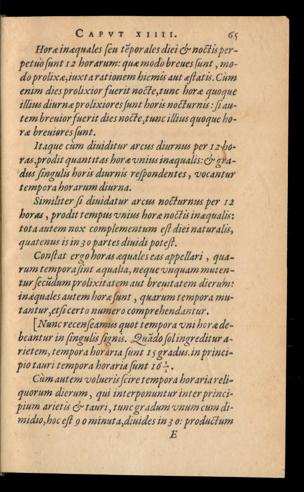 CAPVT XIIII. 65
Horæ inæquales seu tẽporales diei & noctis per-
petuo sunt 12 horarum: quæ modo breues sunt, mo-
do prolixæ, iuxta rationem hiemis aut æstatis. Cum
enim dies prolixior fuerit nocte, tunc horæ quoque
illius diurnæ prolixiores sunt horis nocturnis: si au-
tem breuior fuerit dies nocte, tunc illius quoque ho-
ræ breuiores sunt.
Itaque cum diuiditur arcus diurnus per 12 ho-
ras, prodit quantitas horæ vnius inæqualis: & gra-
dus singulis horis diurnis respondentes, vocantur
tempora horarum diurna.
Similiter si diuidatur arcus nocturnus per 12
horas, prodit tempus vnius horæ noctis inæqualis:
tota autem nox complementum est diei naturalis,
quatenus is in 30 partes diuidi potest.
Constat ergo horas æquales eas appellari, qua-
rum tempora sint æqualia, neque vnquam muten-
tur secũdum prolixitatem aut breuitatem dierum:
inæquales autem horæ sunt, quarum tempora mu-
tantur, etsi certo numero comprehendantur.
[Nunc recenseamus quot tempora vni horæ de-
beantur in singulis signis. Quãdo sol ingreditur a-
rietem, tempora horaria sunt 15 gradus. in princi-
pio tauri tempora horaria sunt 16
Cùm autem volueris scire tempora horaria reli-
quorum dierum, qui interponuntur inter princi-
pium arietis & tauri, tunc gradum vnum cum di-
midio, hoc est 90 minuta, diuides in 30: productum
E